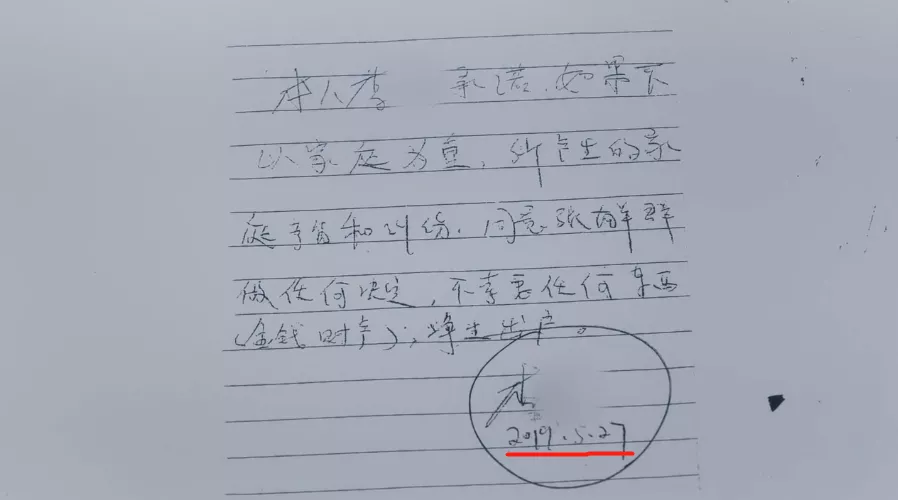 本人李 承诺，如果不
以家庭为重，所产生的家
庭矛盾和纠纷，同意张群群
做任何决定，不索要任何东西
(金钱财产)，净身出户。
李
2019.5.27